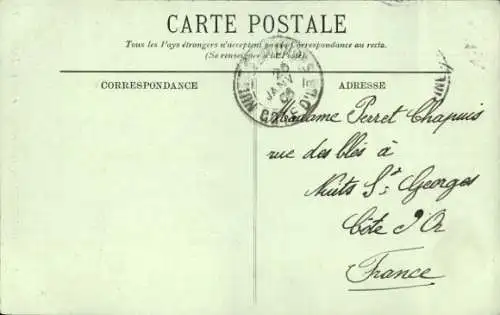 CARTE POSTALE
Tous les Pays étrangers n'acceptent pas la Correspondance au recto.
(Se renseigner à la Poste)
CORRESPONDANCE
ADRESSE
JANV
CÔTE D'OR
Madame Perret Chapuis
rue des blés à
Nuits St. Georges
Côte d'Or
France